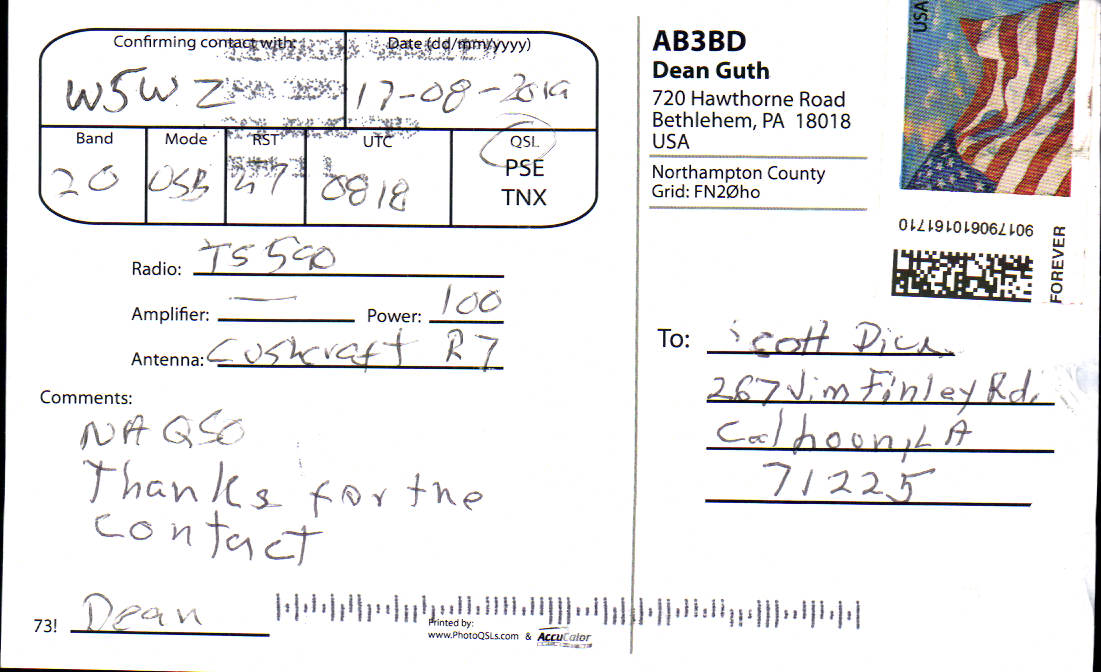 Confirming contact with:
Date (dd/mm/yyyy)
W5WZ
17-08-2019
Band
Mode
RST
UTC
QSL
PSE
TNX
20
USB
0818
Radio: TS 590
Amplifier: —
Power: 100
Antenna: Cushcraft R7
Comments:
NA QSO
Thanks for the
contact
73! Dean
Printed by:
www.PhotoQSLs.com & AccuColor
AB3BD
Dean Guth
720 Hawthorne Road
Bethlehem, PA 18018
USA
Northampton County
Grid: FN2Øho
USA
9017906101619170
FOREVER
To: Scott Dick
267 Jim Finley Rd.
Calhoun, LA
71225